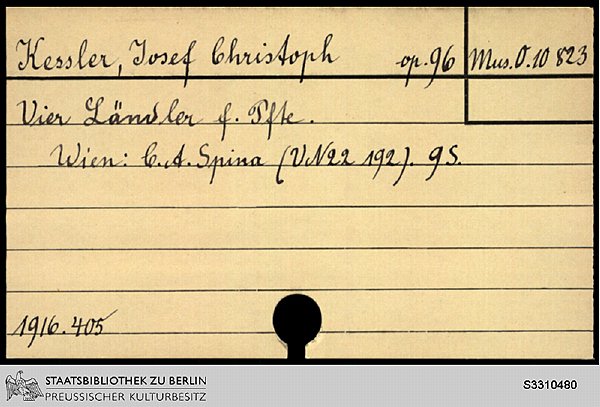 Kessler, Josef Christoph op. 96 Mus. O. 10 823
Vier Ländler f. Pfte.
Wien: C. A. Spina (VN 22 192). 9 S.
1916.405
STAATSBIBLIOTHEK ZU BERLIN
PREUSSISCHER KULTURBESITZ
S3310480